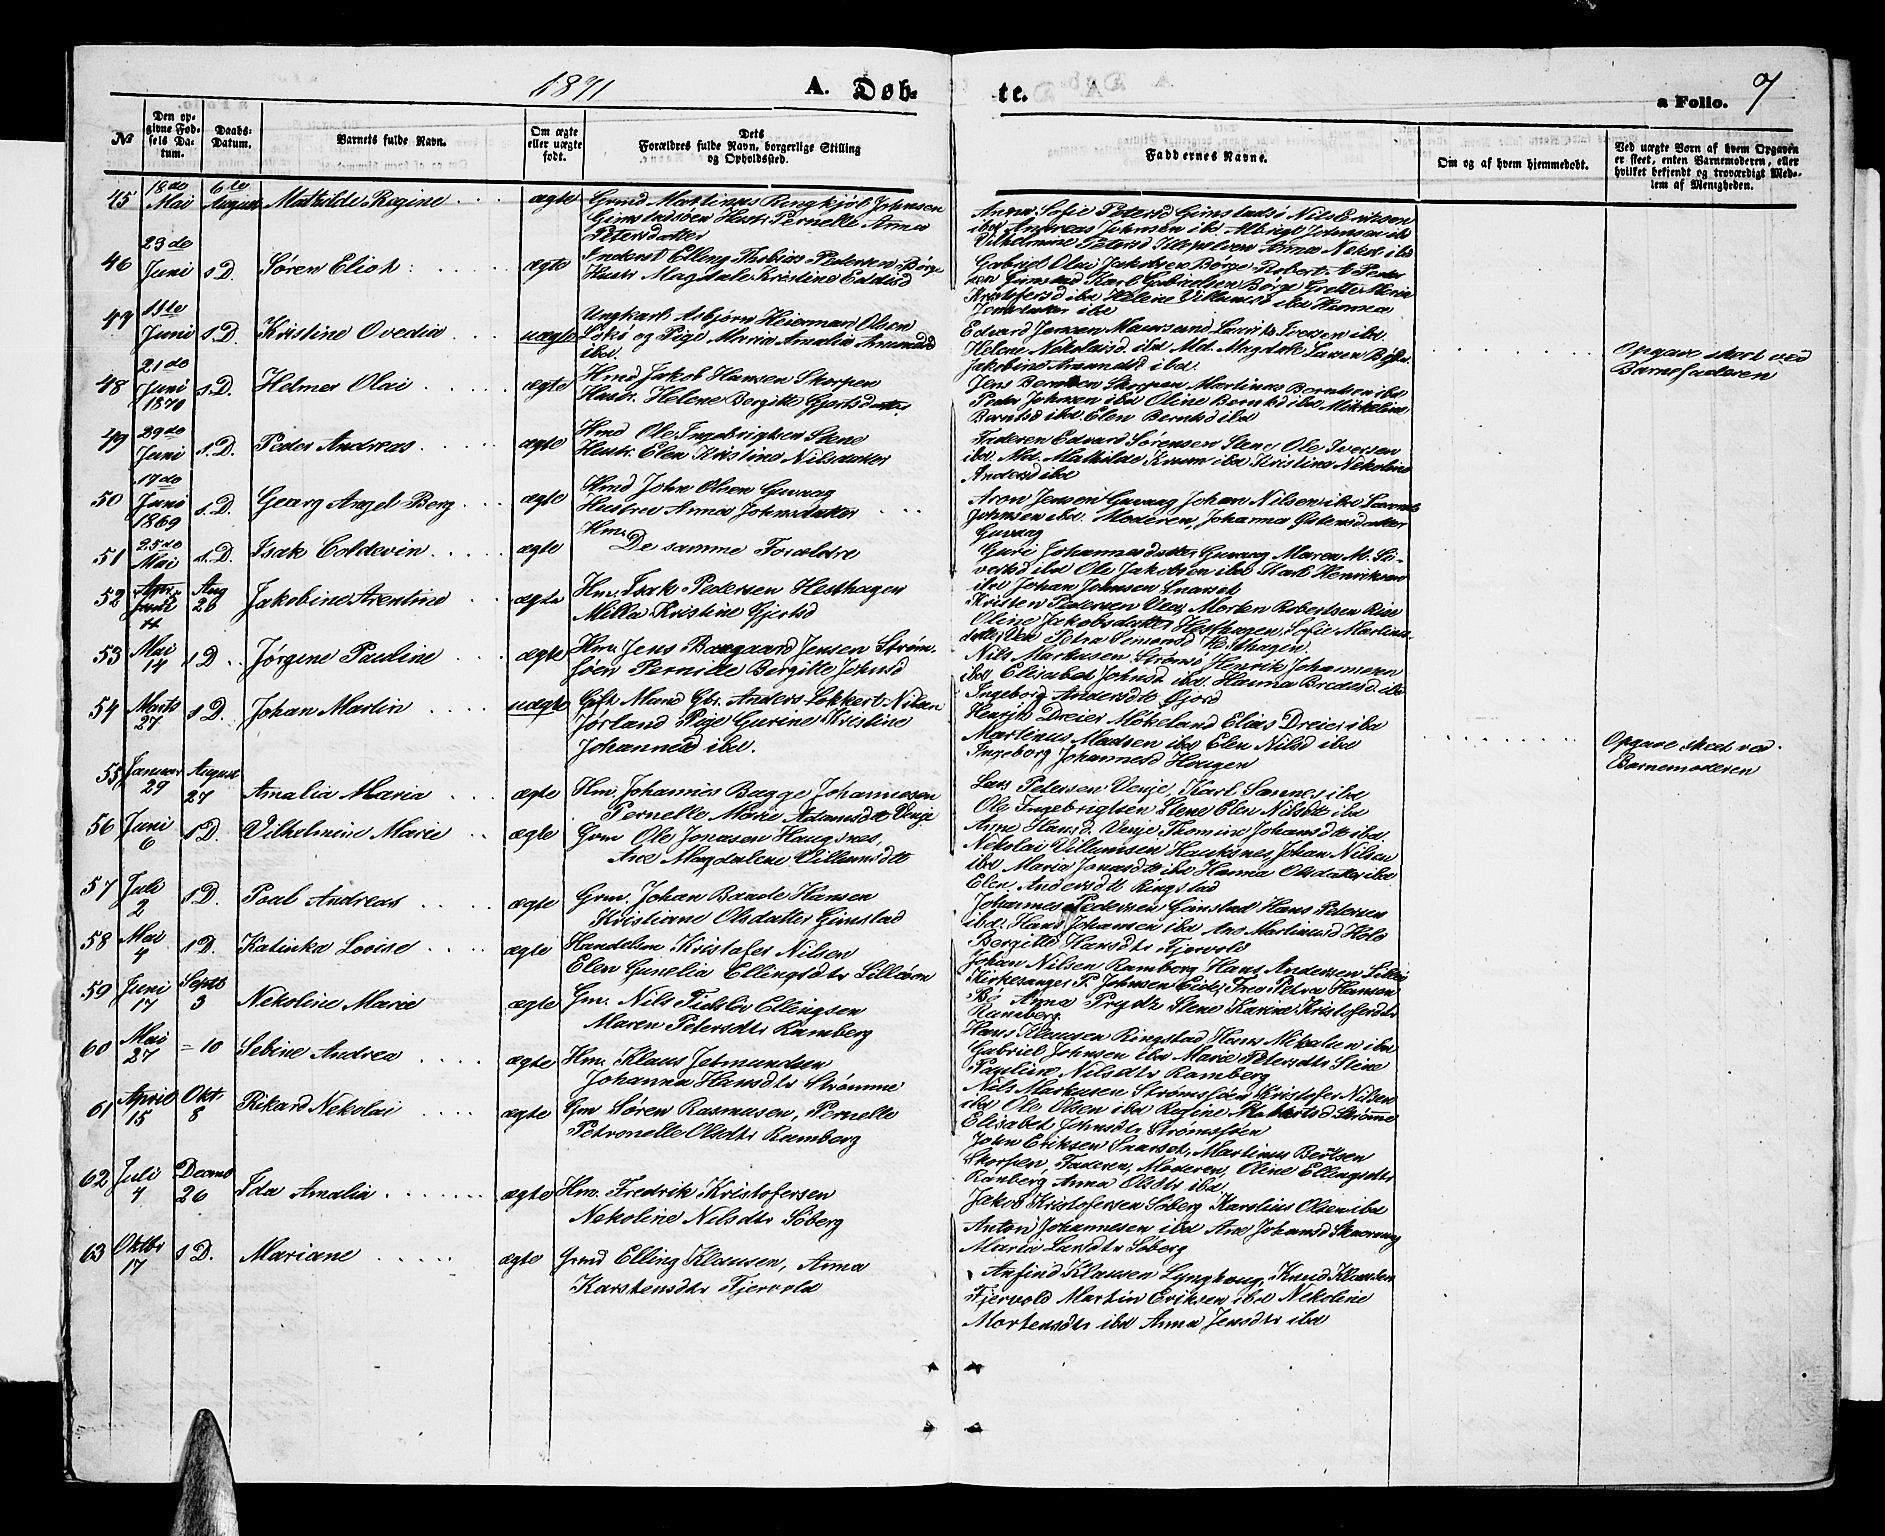 1871
A. Døb-
te.
a Folio. 7
№
Den op-
givne Fød-
sels Da-
tum.
Daabs-
Datum.
Barnets fulde Navn.
Om ægte
eller uægte
født.
Dets
Forældres fulde Navn, borgerlige Stilling
og Opholdssted.
Faddernes Navne.
Om og af hvem hjemmedøbt.
Ved uægte Børn af hvem Opgaven
er skeet, enten Barnemoderen, eller
hvilket bekjendt og troværdigt Med-
lem af Menigheden.
45 18de Mai 6te August Mathilde Regine ægte Gmd Martinus Ringkjøb Johnsen
Gimstadsøen Hustr Pernelle Anna
Petersdatter
Anna Sofie Petersd Gimstadsø Nils Eriksen
ibd Andreas Johnsen ibd Albrigt Johnsen ibd
46 23de Juni s.D. Søren Eliot ægte Inderst Elling Thobias Pedersen Børge
Hustr Magdale Kristine
Gabriel Olai Jakobsen Børge Robert A Peder
sen Gimstad Karl Gabrielsen Børge Grette Maria
Kristofersd ibd Heline Villumsd ibd
47 11te Juni s.D. Kristine Ovedia uægte Ungkarl Asbjørn Heierman Olsen
og Pige Maria Amalia Amundsd
ibd.
Edvard Jensen Maursund Lauritz Iversen ibd
Helene Nekolaisd ibd Md. Magdak
Jakobine Amundsd ibd.
Opgave skeet ved
Barnefaderen
48 21de Juni 1870 s.D. Helmer Olai ægte Hmd Jakob Hansen Skorpen
Hustr. Helene Bergitte Gjertsdatter
Jens Berntsen Skorpen Martinas Berntsen ibd
Peder Johnsen ibd Oline Berntsd ibd Mikkeline
Berntsd ibd. Elen Berntsd ibd
49 29de Juni s.D. Peder Andreas ægte Hmd Ole Ingebrigtsen Stene
Hustr. Elen Kristine Nilsdatter
Faderen Edvard Sørensen Stene Ole Iversen
ibd. Md. Mathilde Krum ibd Kristine Nekoline
Andersd ibd
50 17de Juni 1869 s.D. Georg Angel Berg ægte Hmd John Olsen Guvaag
Hustru Anna Johnsdatter
Aron Jensen Guvaag Johan Nilsen ibd
Johnsen ibd. Moderen, Johanna
Guvaag
51 25de Mai s.D. Isak Coldevin ægte Hm. De samme Forældre
Guri Johannesdatter Guvaag Maren M. Si-
vertsd ibd Ole Jakobsen ibd Karl Henriksen
ibd Johan Johnsen Snarset
52 Juni 11 Aug 26 Jakobine Arentine ægte Hm. Isak Pedersen Hesthagen
Milla Kristine Gjertsd
Kristen Pedersen Vea Morten Robertsen Risø
Oline Jakobsdatter Hesthagen, Sofie Martins
datter Vea Petra Simonsd Hesthagen.
53 Mai 14 s D. Jørgene Pauline ægte Hm. Jens Baagaard Jensen Strøm-
søen Pernille Bergitte Johnsd
Nils Markusen Strømsø Henrik Johannesen
ibd Elisabet Johnsd ibd. Hanna Bredesd ibd
Ingeborg Andersdtr Gjerd
54 Marts 27 s D. Johan Martin uægte Gift Mand Gbr. Anders Lokkert Nilsen
Jørland Pige Gurine Kristine
Johannesd ibd.
Henrik Dreier Møkeland Elias Dreier ibd
Martinus Madsen ibd Elen Nilsd ibd
Ingeborg Johannesd Haugen
Opgave skeet ved
Barnemoderen
55 Januar 29 August 27 Amalia Maria ægte Hm. Johannes Bagge Johannesen
Pernelle Marie Adamsdtr Venje
Lars Petersen Venje, Karl Sannes ibd
Ole Ingebrigtsen Stene Elen Nilsdtr ibd
Anne Hansd Venje Thomine Johansdtr ibd
56 Juni 6 s D. Vilhelmine Marie ægte Grm Ole Jonasen Haugsnes,
Ane Magdalene Villumsdtr
Nekolai Villumsen Hauksnes Johan Nilsen
ibd Maria Jonasdtr ibd Hanna Olsdatter ibd
Elen Andersdtr Ringstad
57 Juli 2 s D. Poal Andreas ægte Grm. Johan Baade Hansen
Kristiane Olsdatter Gimstad
Johannes Pedersen Gimstad Hans Petersen
ibd. Hans Johansen ibd Ane Martinusd Hold
Bergitte Hansdtr Fjervold
58 Mai 4 s D. Katinka Lovise ægte Handelsm Kristofer Nilsen
Elen Gunelia Ellingsdtr Lilleøen
Johan Nilsen Ramberg Hans Andersen Lilleø
Kirkesanger P. Johnsen Eide, Frøe Petra Hansen
Bø Anna Prydz Stene Karine Kristofersdtr
Ramberg.
59 Juni 17 Septb 3 Nekoline Marie ægte Gm. Nils Fidelio Ellingsen
Maren Petersdtr Ramberg
Hans Klausen Ringstad Hans Mikalsen ibd
Gabriel Johnsen ibd Marie Petersdtr Steine
Pauline Nilsdtr Ramberg
60 Mai 27 = 10 Sebine Andrea ægte Hm. Klaus Jetmundsen
Johanna Hansdtr Strømme
Nils Markusen Strømsøen Kristofer Nilsen
ibd Ole Olsen ibd Regine Strømme
Elisabet Johnsdtr Strømsøen
61 April 15 Okt. 8 Rikard Nekolai ægte Gm Søren Rasmusen, Pernelle
Petronelle Olsdtr Ramberg
John Eriksen Snarset, Martinus Bertsen
Skorpen, Faderen, Moderen, Oline Ellingsdtr
Ramberg Anna Olsdtr ibd
62 Juli 4 Decemb 26 Ida Amalia ægte Hm. Fredrik Kristofersen
Nekoline Nilsdtr Søberg
Jakob Kristofersen Søberg Karolius Olsen ibd
Anton Johannesen ibd Ane Johansd
Maria Larsdtr Søberg
63 Oktbr 17 s D. Mariane ægte Grmd Elling Klausen, Anna
Karstensdtr Fjervold
Anfind Klausen Lynghaug, Knud Klausen
Fjervold Martin Eriksen ibd Nekoline
Mortensdtr ibd Anna Jensdtr ibd